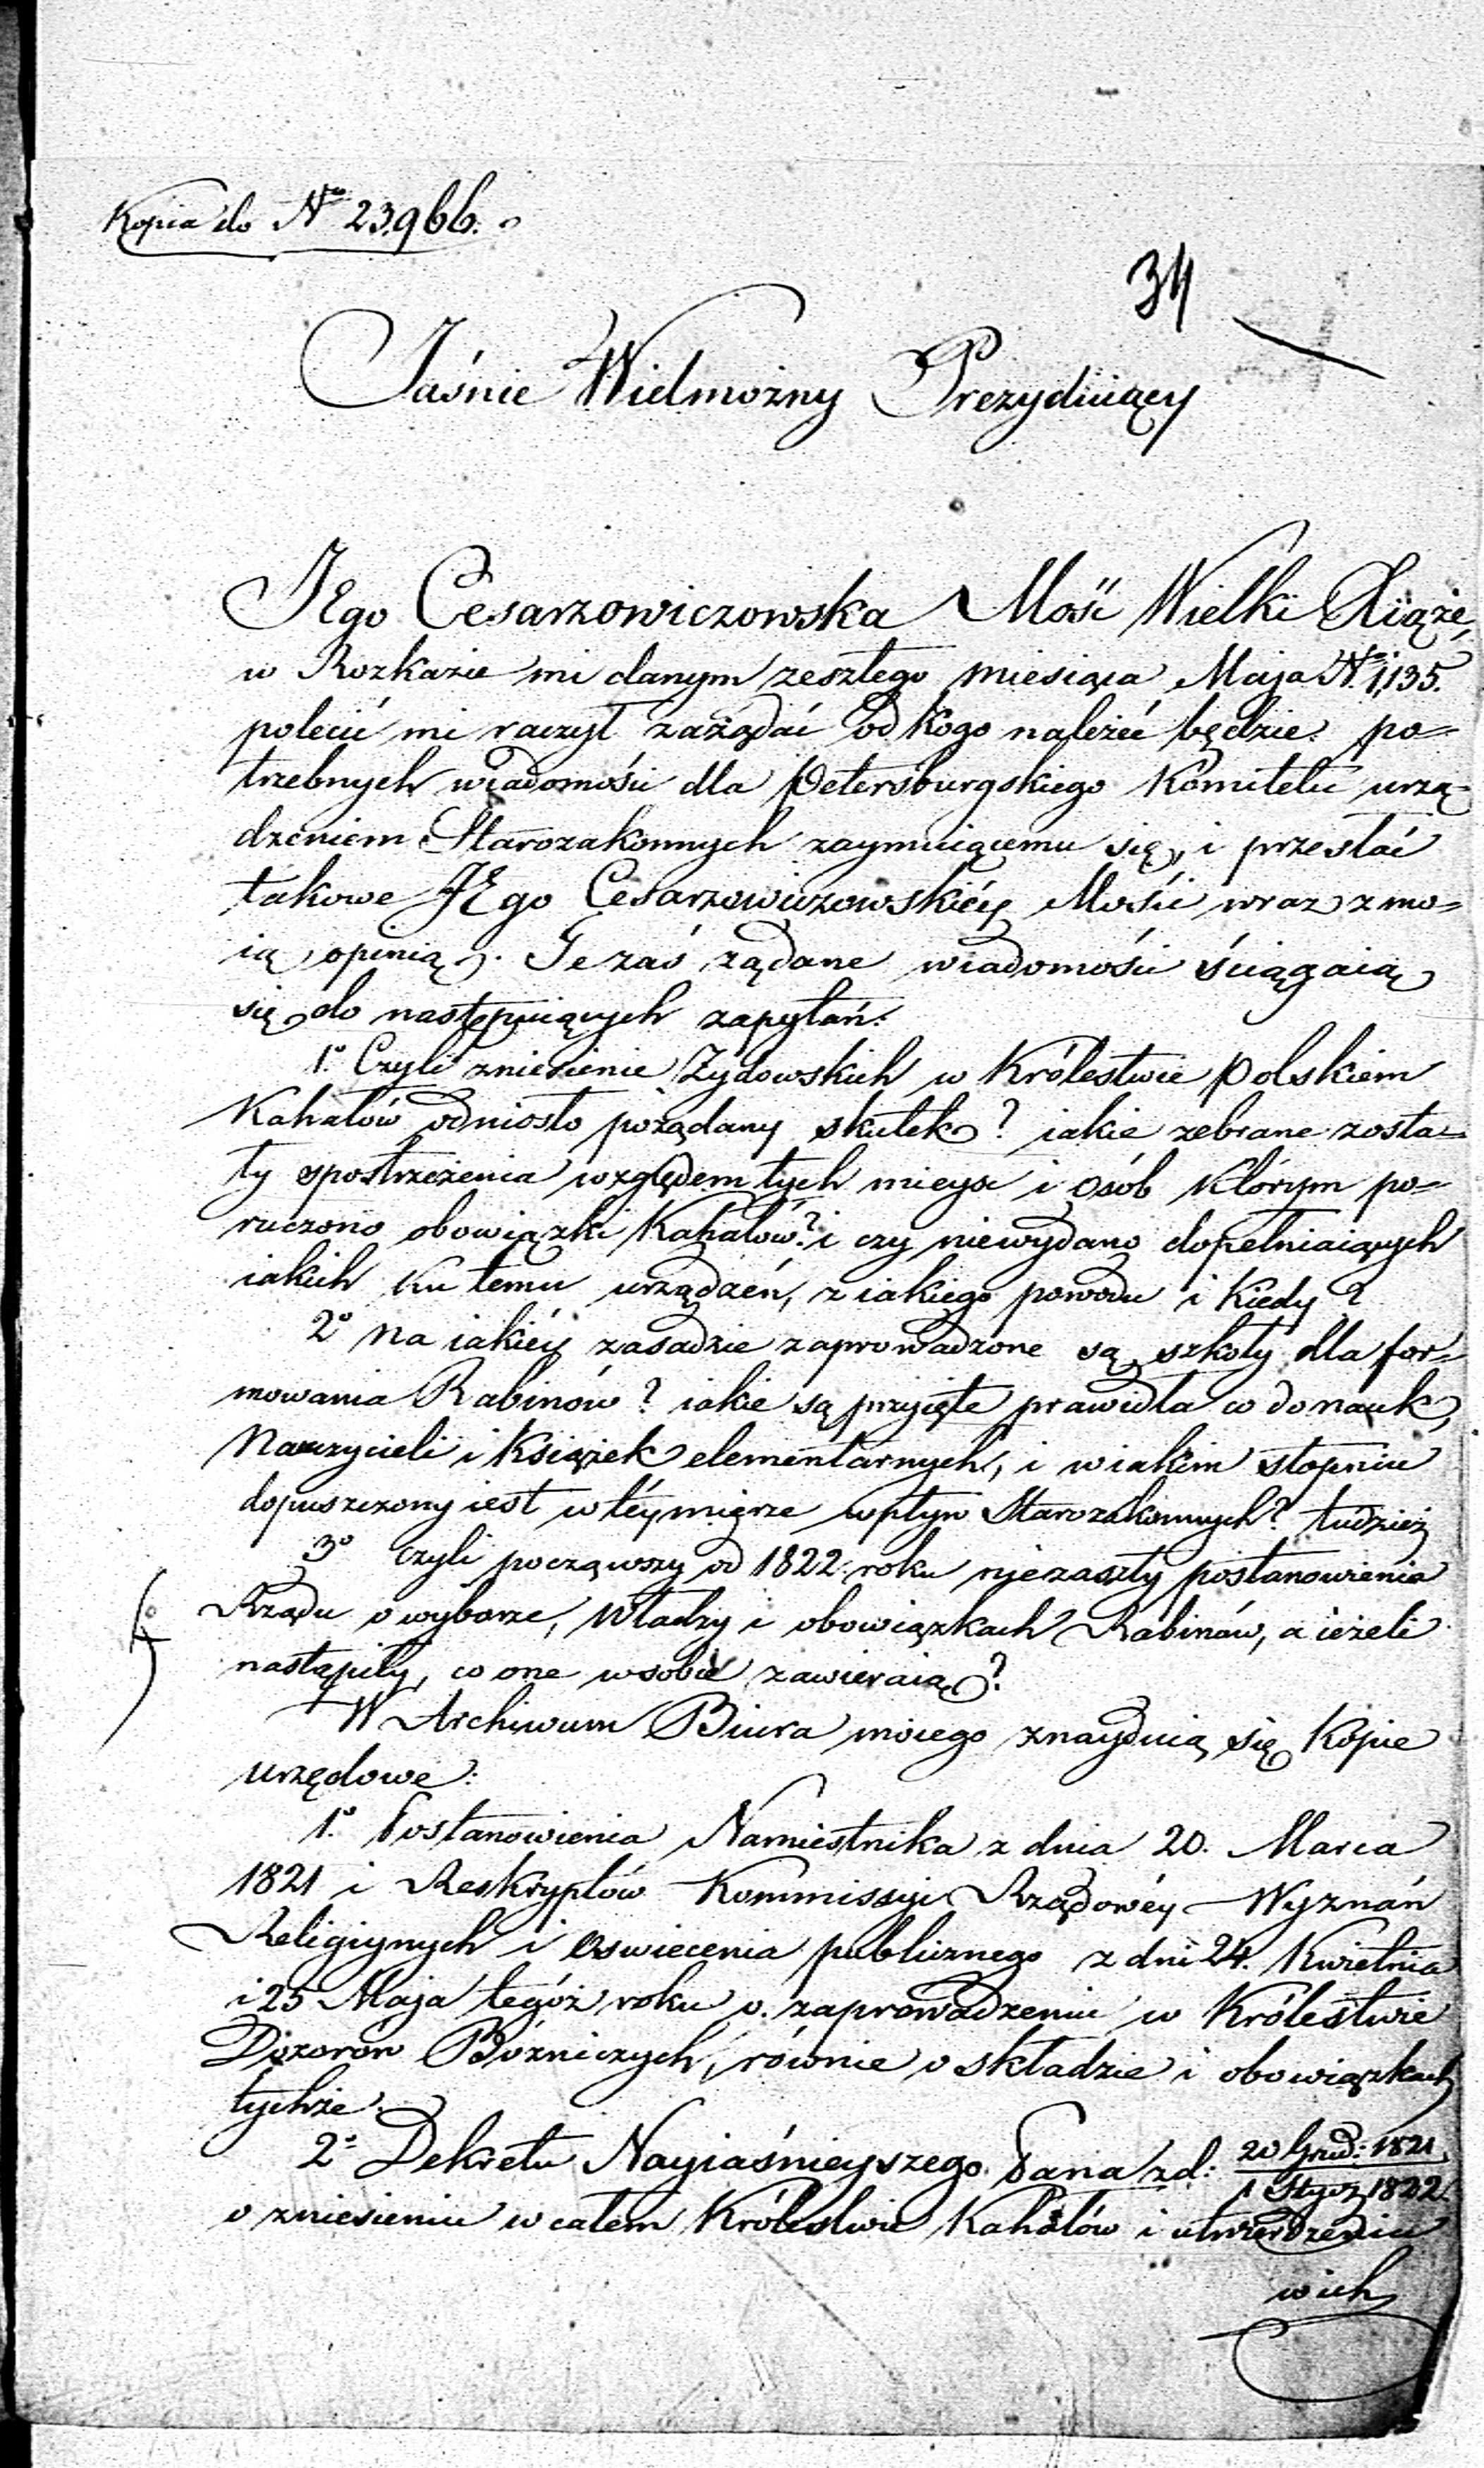 Kopia do Nro 23,966.
34
Jaśnie Wielmożny Prezyduiący
JEgo Cesarzowiczowska Mość Wielki Xiąże,
w Rozkazie mi danym zeszłego miesiąca Maja No. 1,135.
polecić mi raczył zażądać od kogo należeć będzie po=
trzebnych wiadomości dla Petersburgskiego Komitetu urzą=
dzeniem Starozakonnych zaymuiącemu się, i przesłać
takowe JEgo Cesarzowiczowskiéy Mości wraz z mo=
ią opinią. Te zaś żądane wiadomości ściągaią
się do następuiących zapytań:
1o. Czyli zniesienie Żydowskich w Królestwie Polskiem
Kahałów odniosło pożądany skutek? iakie zebrane zosta=
ły spostrzeżenia względem tych mieysc i osób którym po=
ruczono obowiązki Kahałów? i czy niewydano dopełniaiących
iakich ku temu urządzeń, z iakiego powodu i kiedy?
2o Na iakiéy zasadzie zaprowadzone są szkoły dla for=
mowania Rabinów? iakie są przyięte prawidła co do nauk,
Nauczycieli i Książek elementarnych, i w iakim stopniu
dopuszczony iest w téy mierze wpływ Starozakonnych? tudzież
3o czyli począwszy od 1822 roku niezaszły postanowienia
Rządu o wyborze, Władzy i obowiązkach Rabinów, a ieżeli
nastąpiły, co one w sobie zawieraią?
W Archiwum Biura moiego znayduią się Kopie
urzędowe:
1o. Postanowienia Namiestnika z dnia 20. Marca
1821 i Reskryptów Kommissyi Rządowéy Wyznań
Religiynych i Oswiecenia publicznego z dni 24. Kwietnia
i 25 Maja tegóż roku o zaprowadzeniu w Królestwie
Dozorów Bóżniczych, równie o składzie i obowiązkach
tychże.
2o Dekretu Nayiaśnieyszego Pana z d: 20 Grud: 1821
1 Stycz 1822.
o zniesieniu w całem Królestwie Kahałów i utwierdzeniu
w ich